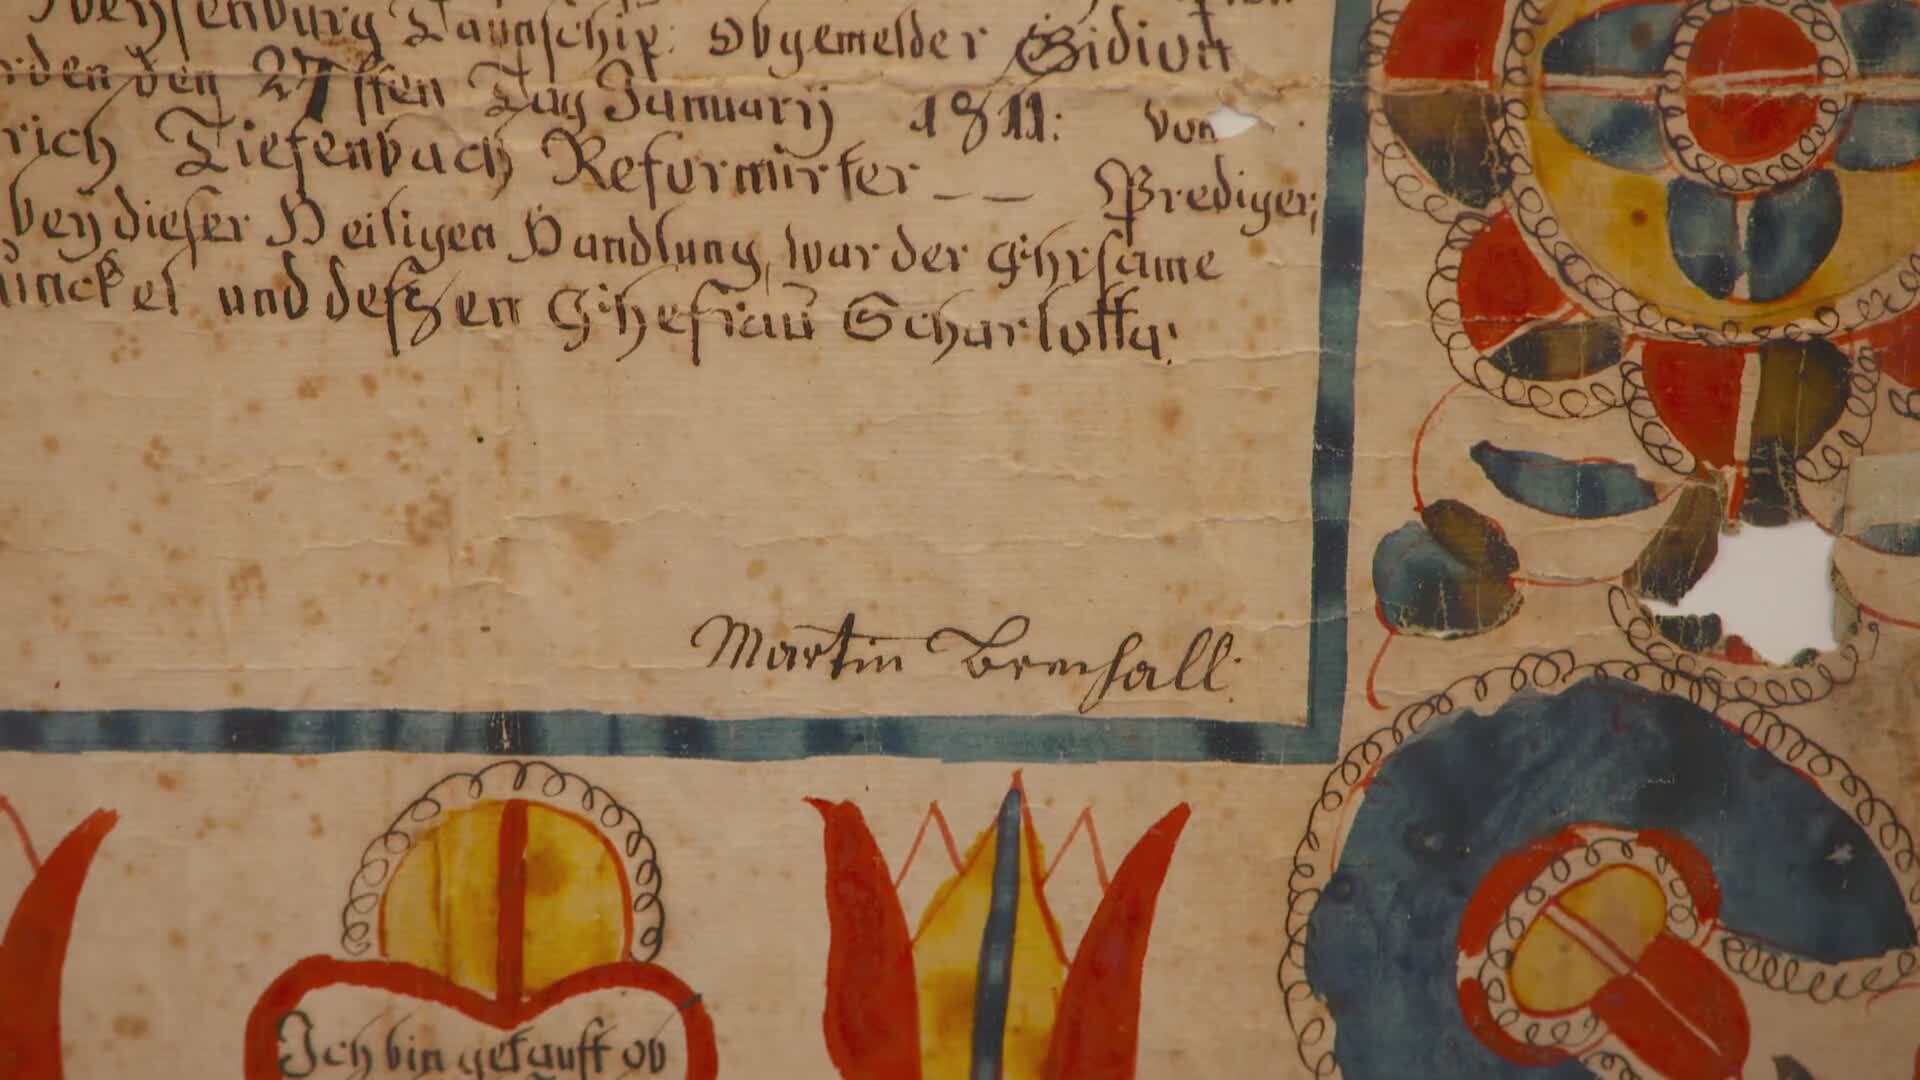 Taunschip: Obgemelder Gidion
den 27sten Tag Januarÿ 1811: von
rich Tiefenbach Reformirter _ _ Prediger;
beÿ dieser Heiligen Handlung, war der Ehrsame
und deßen Ehefrau Scharlotta;
Martin Brechall.
Ich bin getauft ob